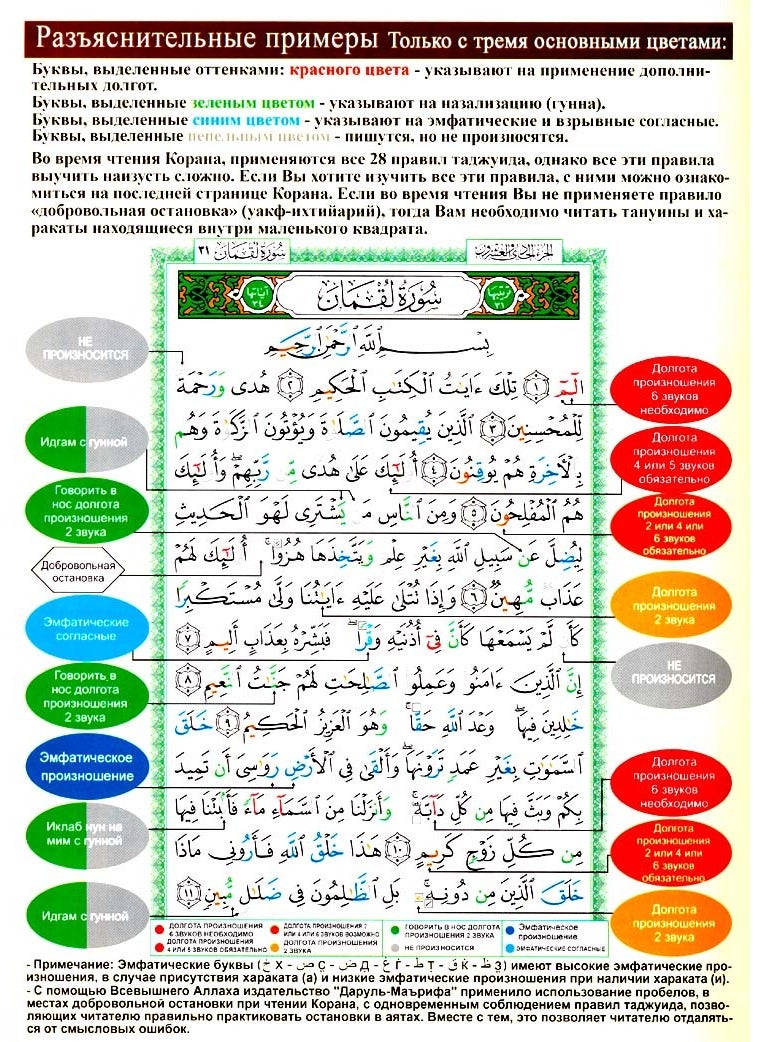 Разъяснительные примеры Только с тремя основными цветами:
Буквы, выделенные оттенками: красного цвета - указывают на применение дополни-
тельных долгот.
Буквы, выделенные зеленым цветом - указывают на назализацию (гунна).
Буквы, выделенные синим цветом - указывают на эмфатические и взрывные согласные.
Буквы, выделенные пепельным цветом - пишутся, но не произносятся.
Во время чтения Корана, применяются все 28 правил таджуида, однако все эти правила
выучить наизусть сложно. Если Вы хотите изучить все эти правила, с ними можно ознако-
миться на последней странице Корана. Если во время чтения Вы не применяете правило
«добровольная остановка» (уакф-ихтийарий), тогда Вам необходимо читать тануины и ха-
ракаты находящиеся внутри маленького квадрата.
سُورَةُ لُقْمَان ٣١
الجزء الحادي والعشرون
آياتها ٣٤
سُورَةُ لُقْمَان
ترتيبها ٣١
بِسْمِ اللَّهِ الرَّحْمَٰنِ الرَّحِيمِ
الٓمٓ ١ تِلْكَ ءَايَٰتُ ٱلْكِتَٰبِ ٱلْحَكِيمِ ٢ هُدًى وَرَحْمَةً
لِّلْمُحْسِنِينَ ٣ ٱلَّذِينَ يُقِيمُونَ ٱلصَّلَوٰةَ وَيُؤْتُونَ ٱلزَّكَوٰةَ وَهُم
بِٱلْءَاخِرَةِ هُمْ يُوقِنُونَ ٤ أُو۟لَٰٓئِكَ عَلَىٰ هُدًى مِّن رَّبِّهِمْ ۖ وَأُو۟لَٰٓئِكَ
هُمُ ٱلْمُفْلِحُونَ ٥ وَمِنَ ٱلنَّاسِ مَن يَشْتَرِى لَهْوَ ٱلْحَدِيثِ
لِيُضِلَّ عَن سَبِيلِ ٱللَّهِ بِغَيْرِ عِلْمٍ وَيَتَّخِذَهَا هُزُوًا ۚ أُو۟لَٰٓئِكَ لَهُمْ
عَذَابٌ مُّهِينٌ ٦ وَإِذَا تُتْلَىٰ عَلَيْهِ ءَايَٰتُنَا وَلَّىٰ مُسْتَكْبِرًا
كَأَن لَّمْ يَسْمَعْهَا كَأَنَّ فِىٓ أُذُنَيْهِ وَقْرًا ۖ فَبَشِّرْهُ بِعَذَابٍ أَلِيمٍ ٧
إِنَّ ٱلَّذِينَ ءَامَنُوا۟ وَعَمِلُوا۟ ٱلصَّٰلِحَٰتِ لَهُمْ جَنَّٰتُ ٱلنَّعِيمِ ٨
خَٰلِدِينَ فِيهَا ۖ وَعْدَ ٱللَّهِ حَقًّا ۚ وَهُوَ ٱلْعَزِيزُ ٱلْحَكِيمُ ٩ خَلَقَ
ٱلسَّمَٰوَٰتِ بِغَيْرِ عَمَدٍ تَرَوْنَهَا ۖ وَأَلْقَىٰ فِى ٱلْأَرْضِ رَوَٰسِىَ أَن تَمِيدَ
بِكُمْ وَبَثَّ فِيهَا مِن كُلِّ دَآبَّةٍ ۚ وَأَنزَلْنَا مِنَ ٱلسَّمَآءِ مَآءً فَأَنۢبَتْنَا فِيهَا
مِن كُلِّ زَوْجٍ كَرِيمٍ ١٠ هَٰذَا خَلْقُ ٱللَّهِ فَأَرُونِى مَاذَا
خَلَقَ ٱلَّذِينَ مِن دُونِهِ ۚ بَلِ ٱلظَّٰلِمُونَ فِى ضَلَٰلٍ مُّبِينٍ ١١
НЕ
ПРОИЗНОСИТСЯ
Идгам с гунной
Говорить в
нос долгота
произношения
2 звука
Добровольная
остановка
Эмфатические
согласные
Говорить, в
нос долгота
произношения
2 звука
Эмфатическое
произношение
Иклаб нун на
мим с гунной
Идгам с гунной
Долгота
произношения
6 звуков
необходимо
Долгота
произношения
4 или 5 звуков
обязательно
Долгота
произношения
2 или 4 или
6 звуков
обязательно
Долгота
произношения
2 звука
НЕ
ПРОИЗНОСИТСЯ
Долгота
произношения
6 звуков
необходимо
Долгота
произношения
2 или 4 или
6 звуков
обязательно
Долгота
произношения
2 звука
ДОЛГОТА ПРОИЗНОШЕНИЯ
6 ЗВУКОВ НЕОБХОДИМО
ДОЛГОТА ПРОИЗНОШЕНИЯ
4 ИЛИ 5 ЗВУКОВ ОБЯЗАТЕЛЬНО
ДОЛГОТА ПРОИЗНОШЕНИЯ 2
ИЛИ 4 ИЛИ 6 ЗВУКОВ ВОЗМОЖНО
ДОЛГОТА ПРОИЗНОШЕНИЯ
2 ЗВУКА
ГОВОРИТЬ В НОС ДОЛГОТА
ПРОИЗНОШЕНИЯ 2 ЗВУКА
НЕ ПРОИЗНОСИТСЯ
Эмфатическое
произношение
ЭМФАТИЧЕСКИЕ СОГЛАСНЫЕ
- Примечание: Эмфатические буквы (خ Х - ص С - ض Д - غ Г - ط Т - ق К - ظ З) имеют высокие эмфатические про-
изношения, в случае присутствия хараката (а) и низкие эмфатические произношения при наличии хараката (и).
- С помощью Всевышнего Аллаха издательство "Даруль-Маърифа" применило использование пробелов, в
местах добровольной остановки при чтении Корана, с одновременным соблюдением правил таджуида, позво-
ляющих читателю правильно практиковать остановки в аятах. Вместе с тем, это позволяет читателю отдалять-
ся от смысловых ошибок.